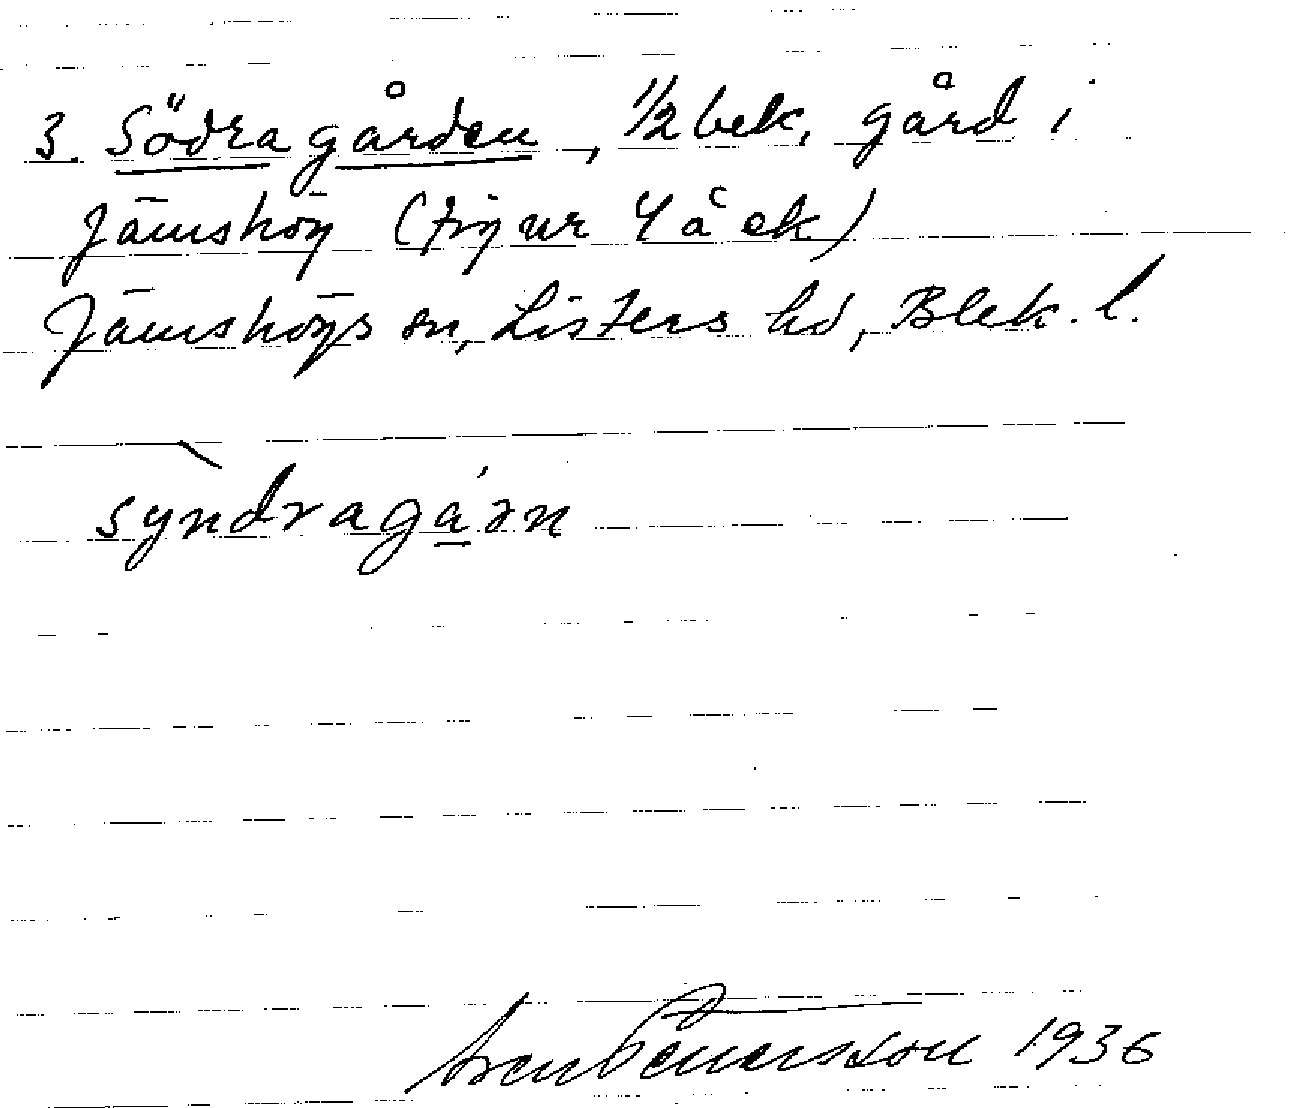 3. Södra gården, 1/2 bek. gård i
Jämshög (figur 4 å ek)
Jämshögs sn, Listers hd, Blek. l.
syndragárn
1936